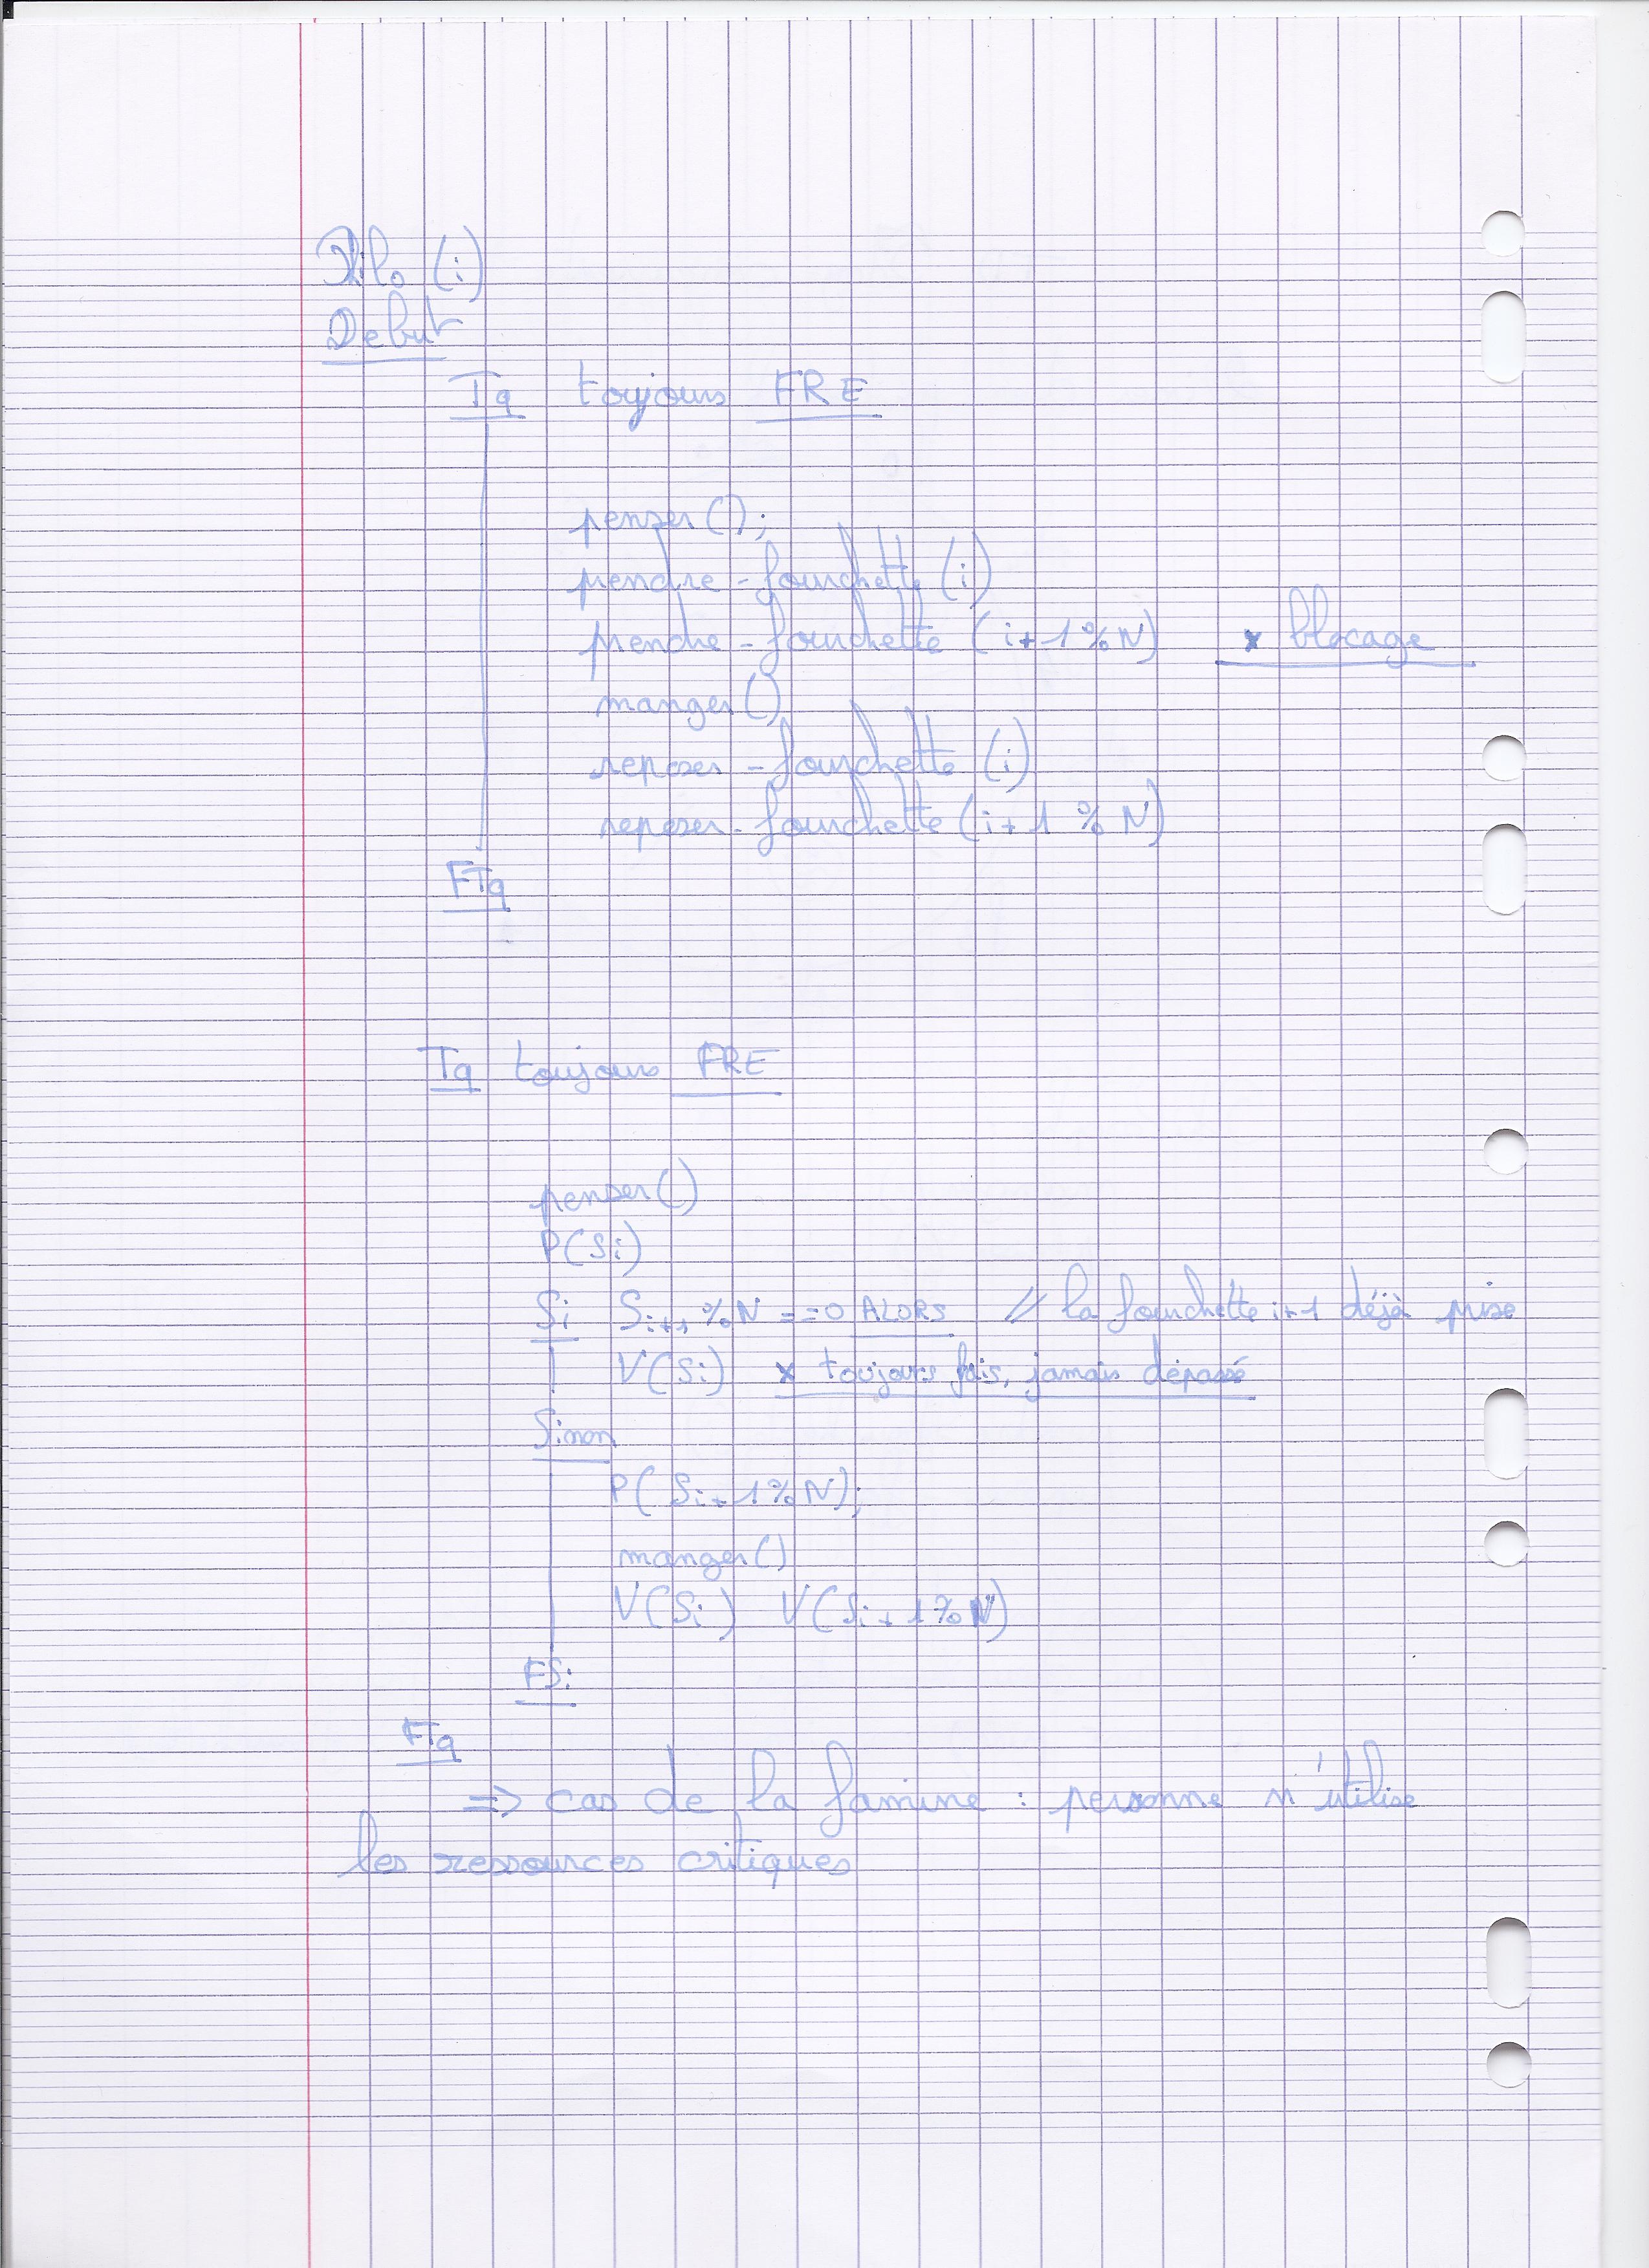 Philo (i)
Debut
Tq toujours FRE
penser();
prendre-fourchette (i)
prendre-fourchette (i+1%N) * blocage
manger()
reposer-fourchette (i)
reposer-fourchette (i+1 % N)
FTq
Tq toujours FRE
penser()
P(Si)
Si Si+1%N ==0 ALORS // la fourchette i+1 déjà prise
V(Si) * toujours fais, jamais dépassé
Sinon
P(Si+1%N);
manger()
V(Si) V(Si+1%N)
FSi
FTq
=> cas de la famine : personne n'utilise
les ressources critiques